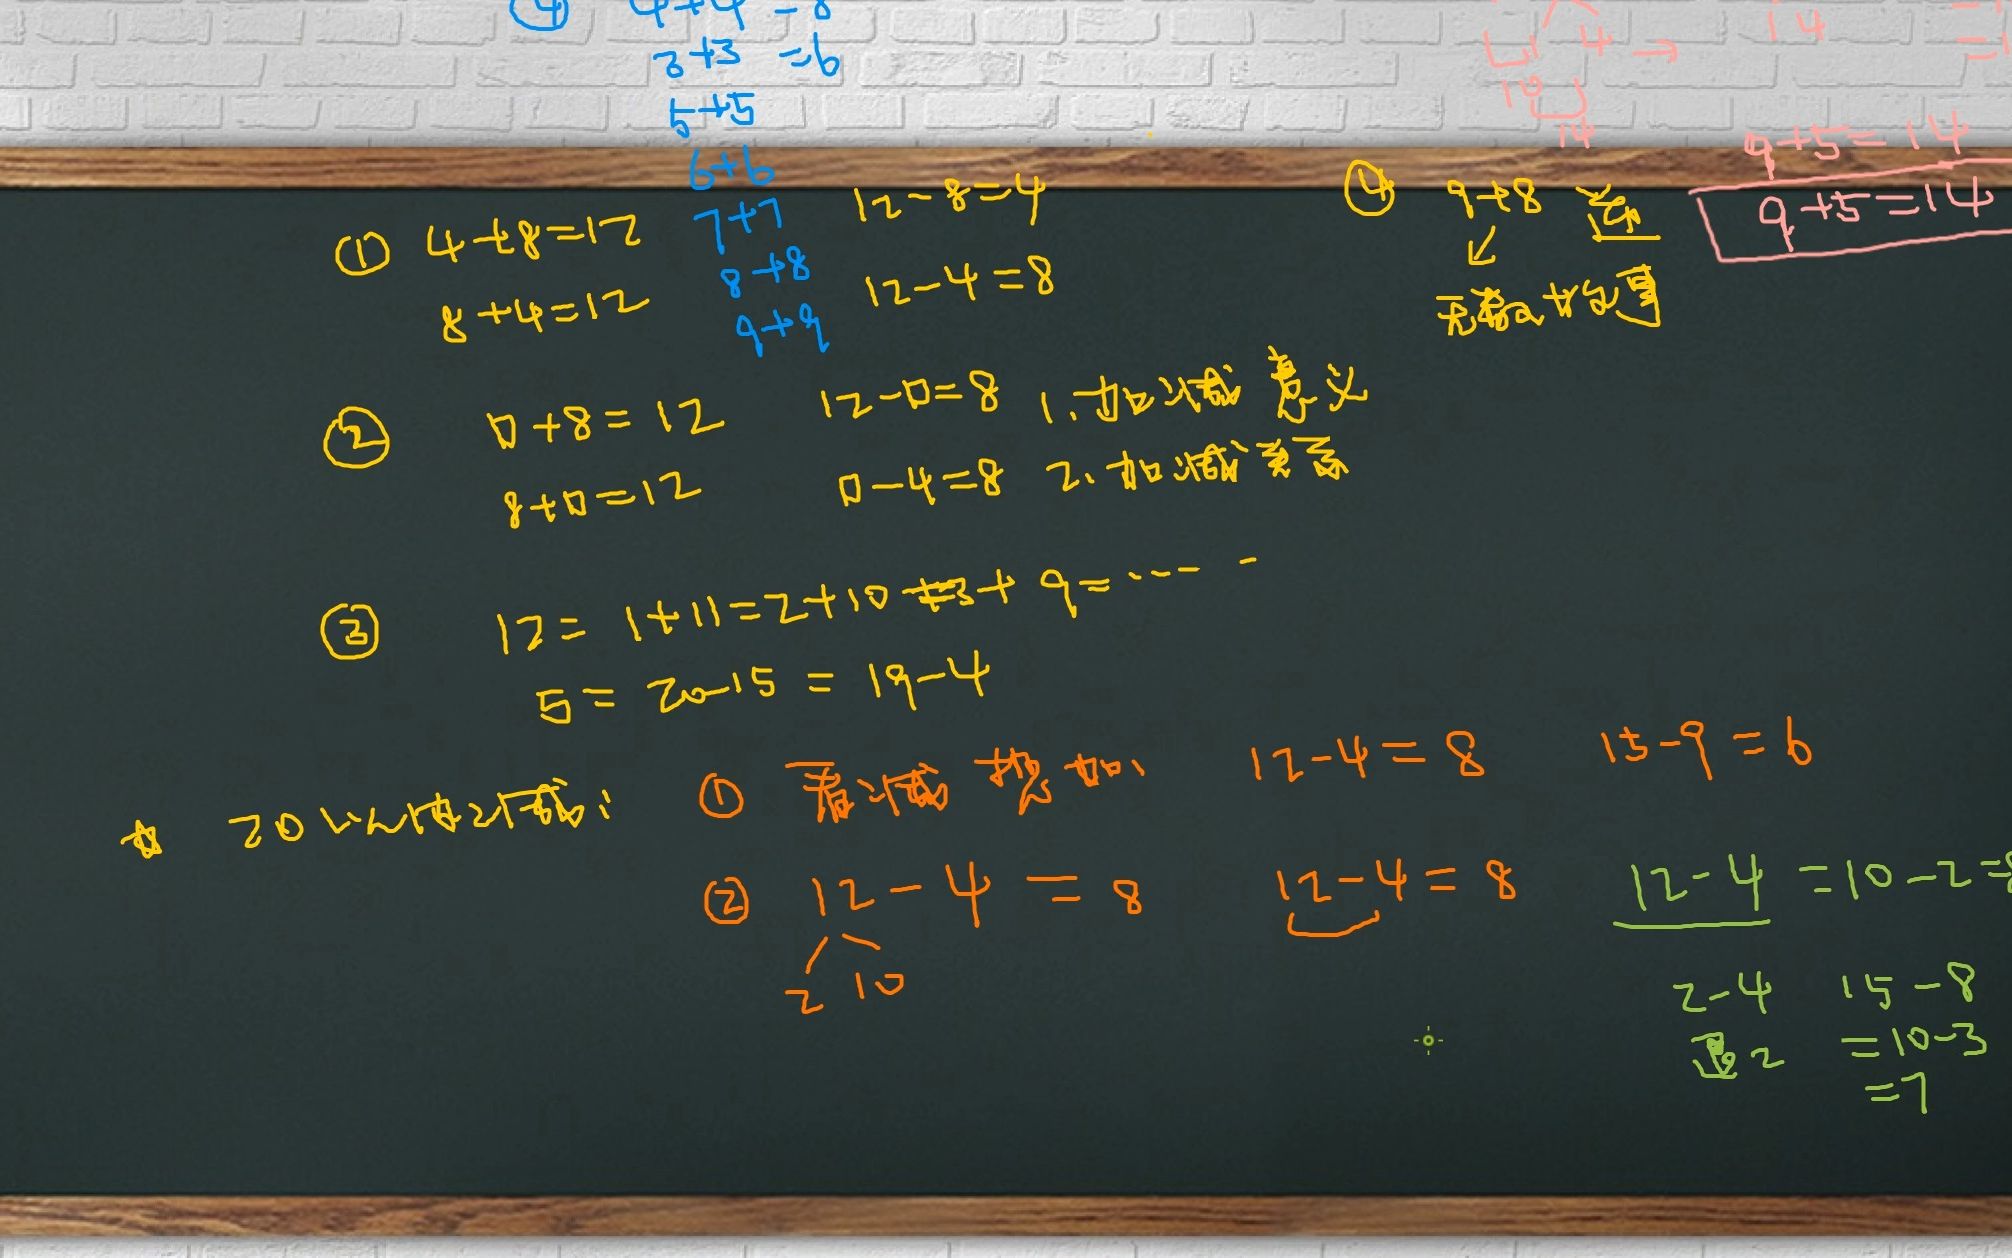 ④ 4+4=8
3+3=6
5+5
6+6
7+7
8+8
9+9
4 → 14
10
14
9+5=14
9+5=14
① 4+8=12 12-8=4
8+4=12 12-4=8
④ 9+8
↙
无
② □+8=12 12-□=8 1.加减意义
8+□=12 □-4=8 2.加减关系
③ 12=1+11=2+10=3+9=……
5=20-15=19-4
☆ 20以内减:
① 看减想加、 12-4=8 15-9=6
② 12-4=8 12-4=8 12-4=10-2=8
2 10
2-4 15-8
退2 =10-3
=7